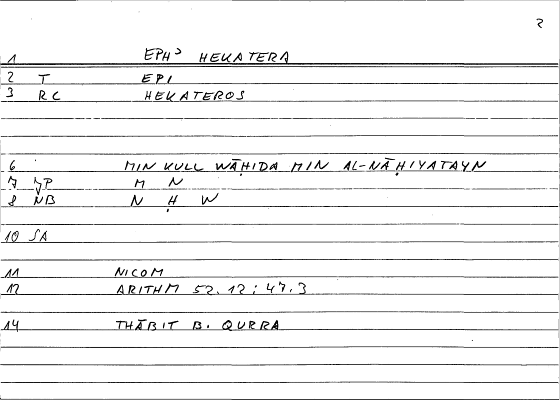 2
1 EPH' HEKATERA
2 T EPI
3 RC HEKATEROS
6 MIN KULL WĀḤIDA MIN AL-NĀḤIYATAYN
7 JP M N
8 NB N Ḥ W
10 SA
11 NICOM
12 ARITHM 52.12 : 47.3
14 THĀBIT B. QURRA